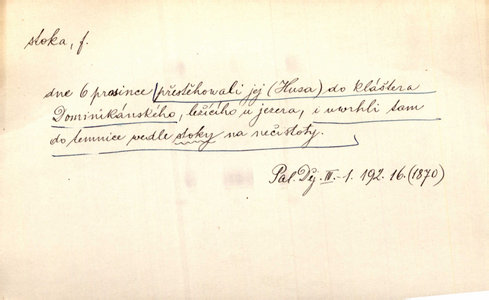 stoka, f.
dne 6 prosince přestěhowali jej (Husa) do kláštera
Dominikánského, ležícího u jezera, i uwrhli tam
do temnice wedle stoky na nečistoty.
Pal. Děj. III.-1. 192. 16. (1870)